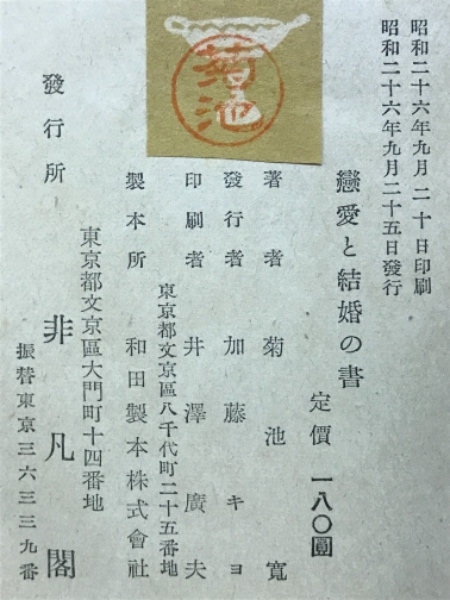 昭和二十六年九月二十日印刷
昭和二十六年九月二十五日發行
戀愛と結婚の書
定價 一八〇圓
著者 菊池寬
發行者 加藤キヨ
印刷者 井澤廣夫
東京都文京區八千代町二十五番地
製本所 和田製本株式會社
東京都文京區大門町十四番地
發行所 非凡閣
振替東京三六三三九番
菊池